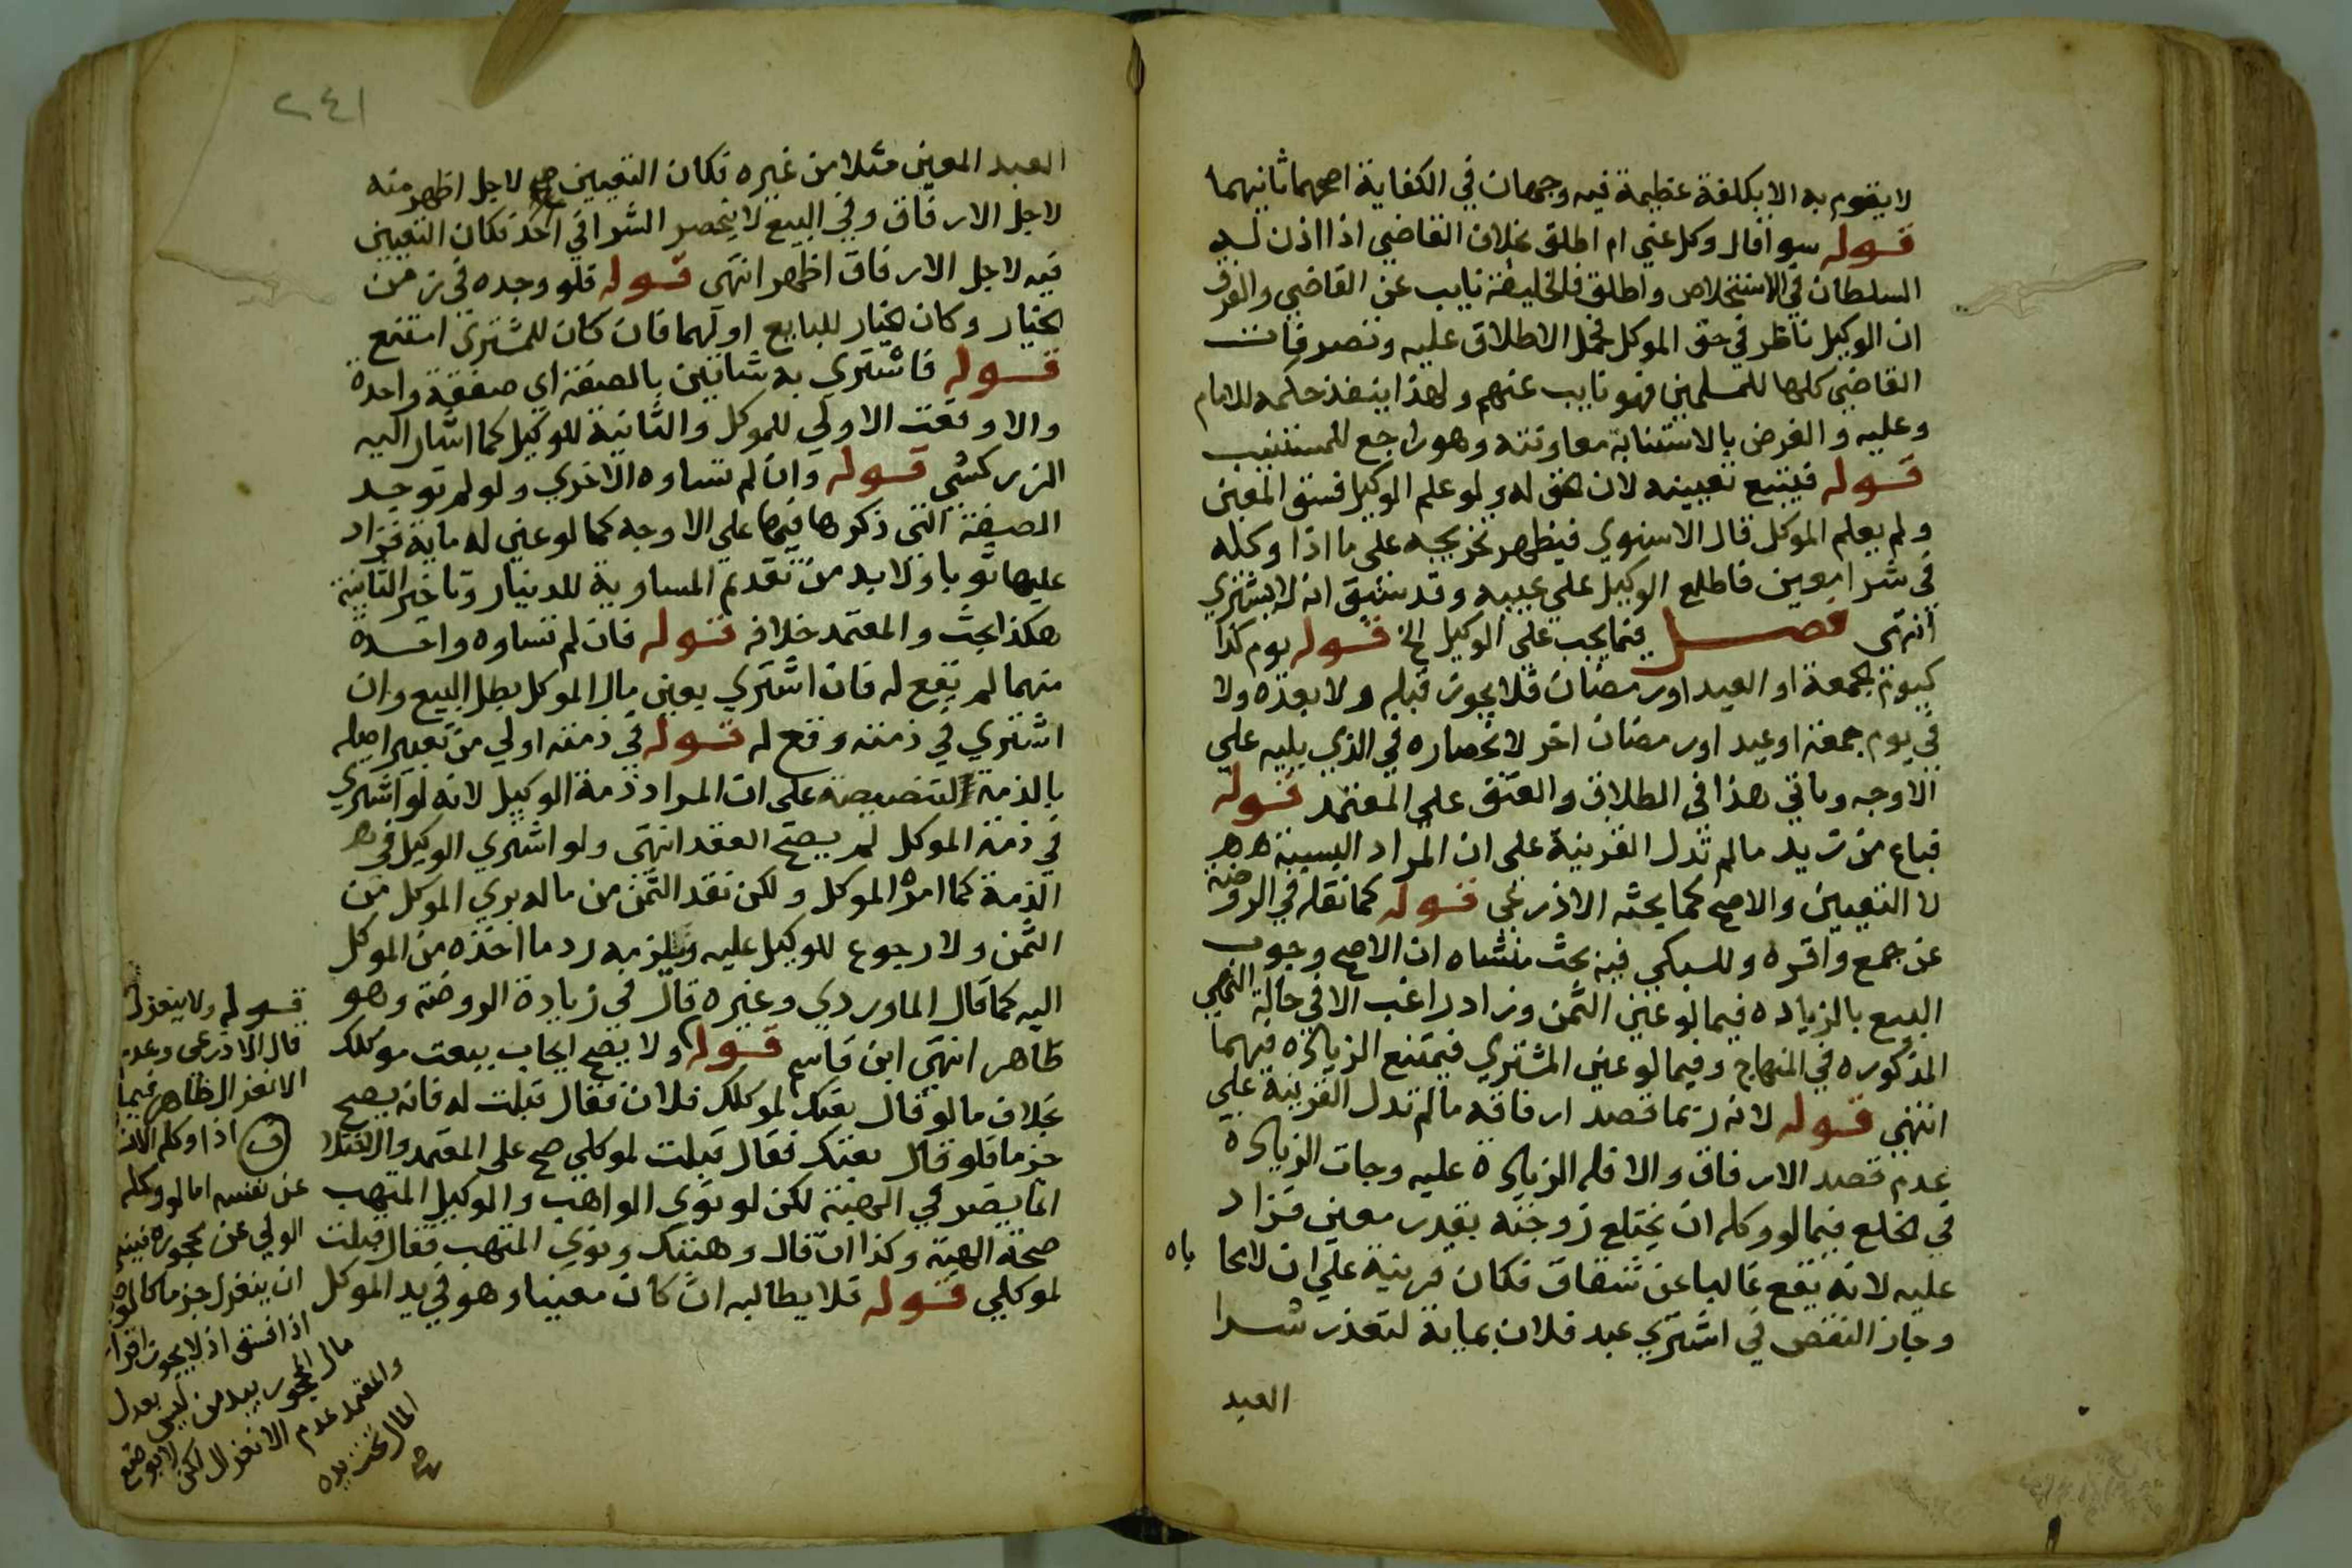 لا يقوم به الا بكلفة عظيمة فيه وجهان في الكفاية اصحهما ثانيهما
قوله سوا قال وكل عني ام اطلق بخلاف القاضي اذا اذن له
السلطان في الاستخلاف واطلق فالخليفة نايب عن القاضي والفرق
ان الوكيل ناظر في حق الموكل فحمل الاطلاق عليه وتصرفات
القاضي كلها للمسلمين فهو نايب عنهم ولهذا ينفذ حكمه للامام
وعليه والغرض بالاستنابة معاونته وهو راجع للمستنيب
قوله فيتبع تعيينه لان الحق له ولو علم الوكيل فسق المعين
ولم يعلم الموكل قال الاسنوي فيظهر تخريجه على ما اذا وكله
في شرا معين فاطلع الوكيل على عيبه وقد سبق انه لا يشتري
انتهى فصل فيما يجب على الوكيل الخ قوله يوم كذا
كيوم الجمعة او العيد او رمضان فلا يجوز قبله ولا بعده ولا
في يوم جمعة او عيد او رمضان اخر لانحصاره في الذي يليه على
الاوجه وياتي هذا في الطلاق والعتق على المعتمد قوله
فباع من زيد ما لم تدل القرينة على ان المراد البسيبة هم
لا التعيين والاصح كما بحثه الاذرعي قوله كما نقله في الروضة
عن جمع واقره وللسبكي فيه بحث منشاه ان الاصح وجوب
البيع بالزياده فيما لو عين الثمن وزاد راغب الا في حالة النهي
المذكوره في المنهاج وفيما لو عين المشتري فيمتنع الزيادة فيهما
انتهي قوله لانه ربما قصد ارفاقه ما لم تدل القرينة على
عدم قصد الارفاق والا فله الزيادة عليه وجات الزيادة
في الخلع فيما لو وكله ان يختلع زوجته بقدر معين فزاد
عليه لانه يقع غالبا عن شقاق فكان قرينة على ان لا محا باه
وجاز النقص في اشتري عبد فلان بماية لتعذر شرا
العبد
٢٤١
العبد المعين مثلا من غيره فكان التعيين لاجل اظهر منه
لاجل الارفاق وفي البيع لا ينحصر الشرا في احد فكان التعيين
فيه لاجل الارفاق اظهر انتهى قوله فلو وجده في زمن
الخيار وكان الخيار للبايع او لهما فان كان للمشتري امتنع
قوله فاشتري به شاتين بالصفة اي صفقة واحدة
والا وقعت الاولي للموكل والثانية للوكيل كما اشار اليه
الزركشي قوله وان لم تساوه الاخري ولو لم توجد
الصفة التي ذكرها فيها علي الاوجه كما لو عين له ماية فزاد
عليها ثوبا ولا بد من تقدم المساوية للدينار وتاخير الثانية
هكذا بحث والمعتمد خلافه قوله فان لم تساوه واحدة
منهما لم يقع له فان اشتري بعين مال الموكل بطل البيع وان
اشتري في ذمته وقع له قوله في ذمته اولي من تعبير اصله
بالذمة لتنصيصه على ان المراد ذمة الوكيل لانه لو اشتري
في ذمة الموكل لم يصح العقد انتهى ولو اشتري الوكيل في هـ
الذمة كما امره الموكل ولكن نقد الثمن من ماله بري الموكل من
الثمن ولا رجوع للوكيل عليه ويلزمه رد ما اخذه من الموكل
اليه كما قال الماوردي وغيره قال في زيادة الروضة وهو
ظاهر انتهي ابن قاسم قوله ولا يصح ايجاب ببعت موكلك
بخلاف ما لو قال بعتك لموكلك فلان فقال قبلت له فانه يصح
جزما فلو قال بعتك فقال قبلت لموكلي صح على المعتمد والاختلا
انما يضر في الهبة لكن لو نوى الواهب والوكيل المتهب
صحة الهبة وكذا ان قال وهبتك ونوي المتهب فقال قبلت
لموكلي قوله فلا يطالبه ان كان معينا وهو في يد الموكل
قوله ولا ينعزل
قال الاذرعي وعدم
الانعزال ظاهر فيما
اذا وكله
عن نفسه اما لو وكله
الولي عن محجوره فينبغي
ان ينعزل جزما كالوصي
اذا فسق اذ لا يجوز اقرار
مال المحجور بيد من ليس بعدل
والمعتمد عدم الانعزال لكن
المال تحت يده